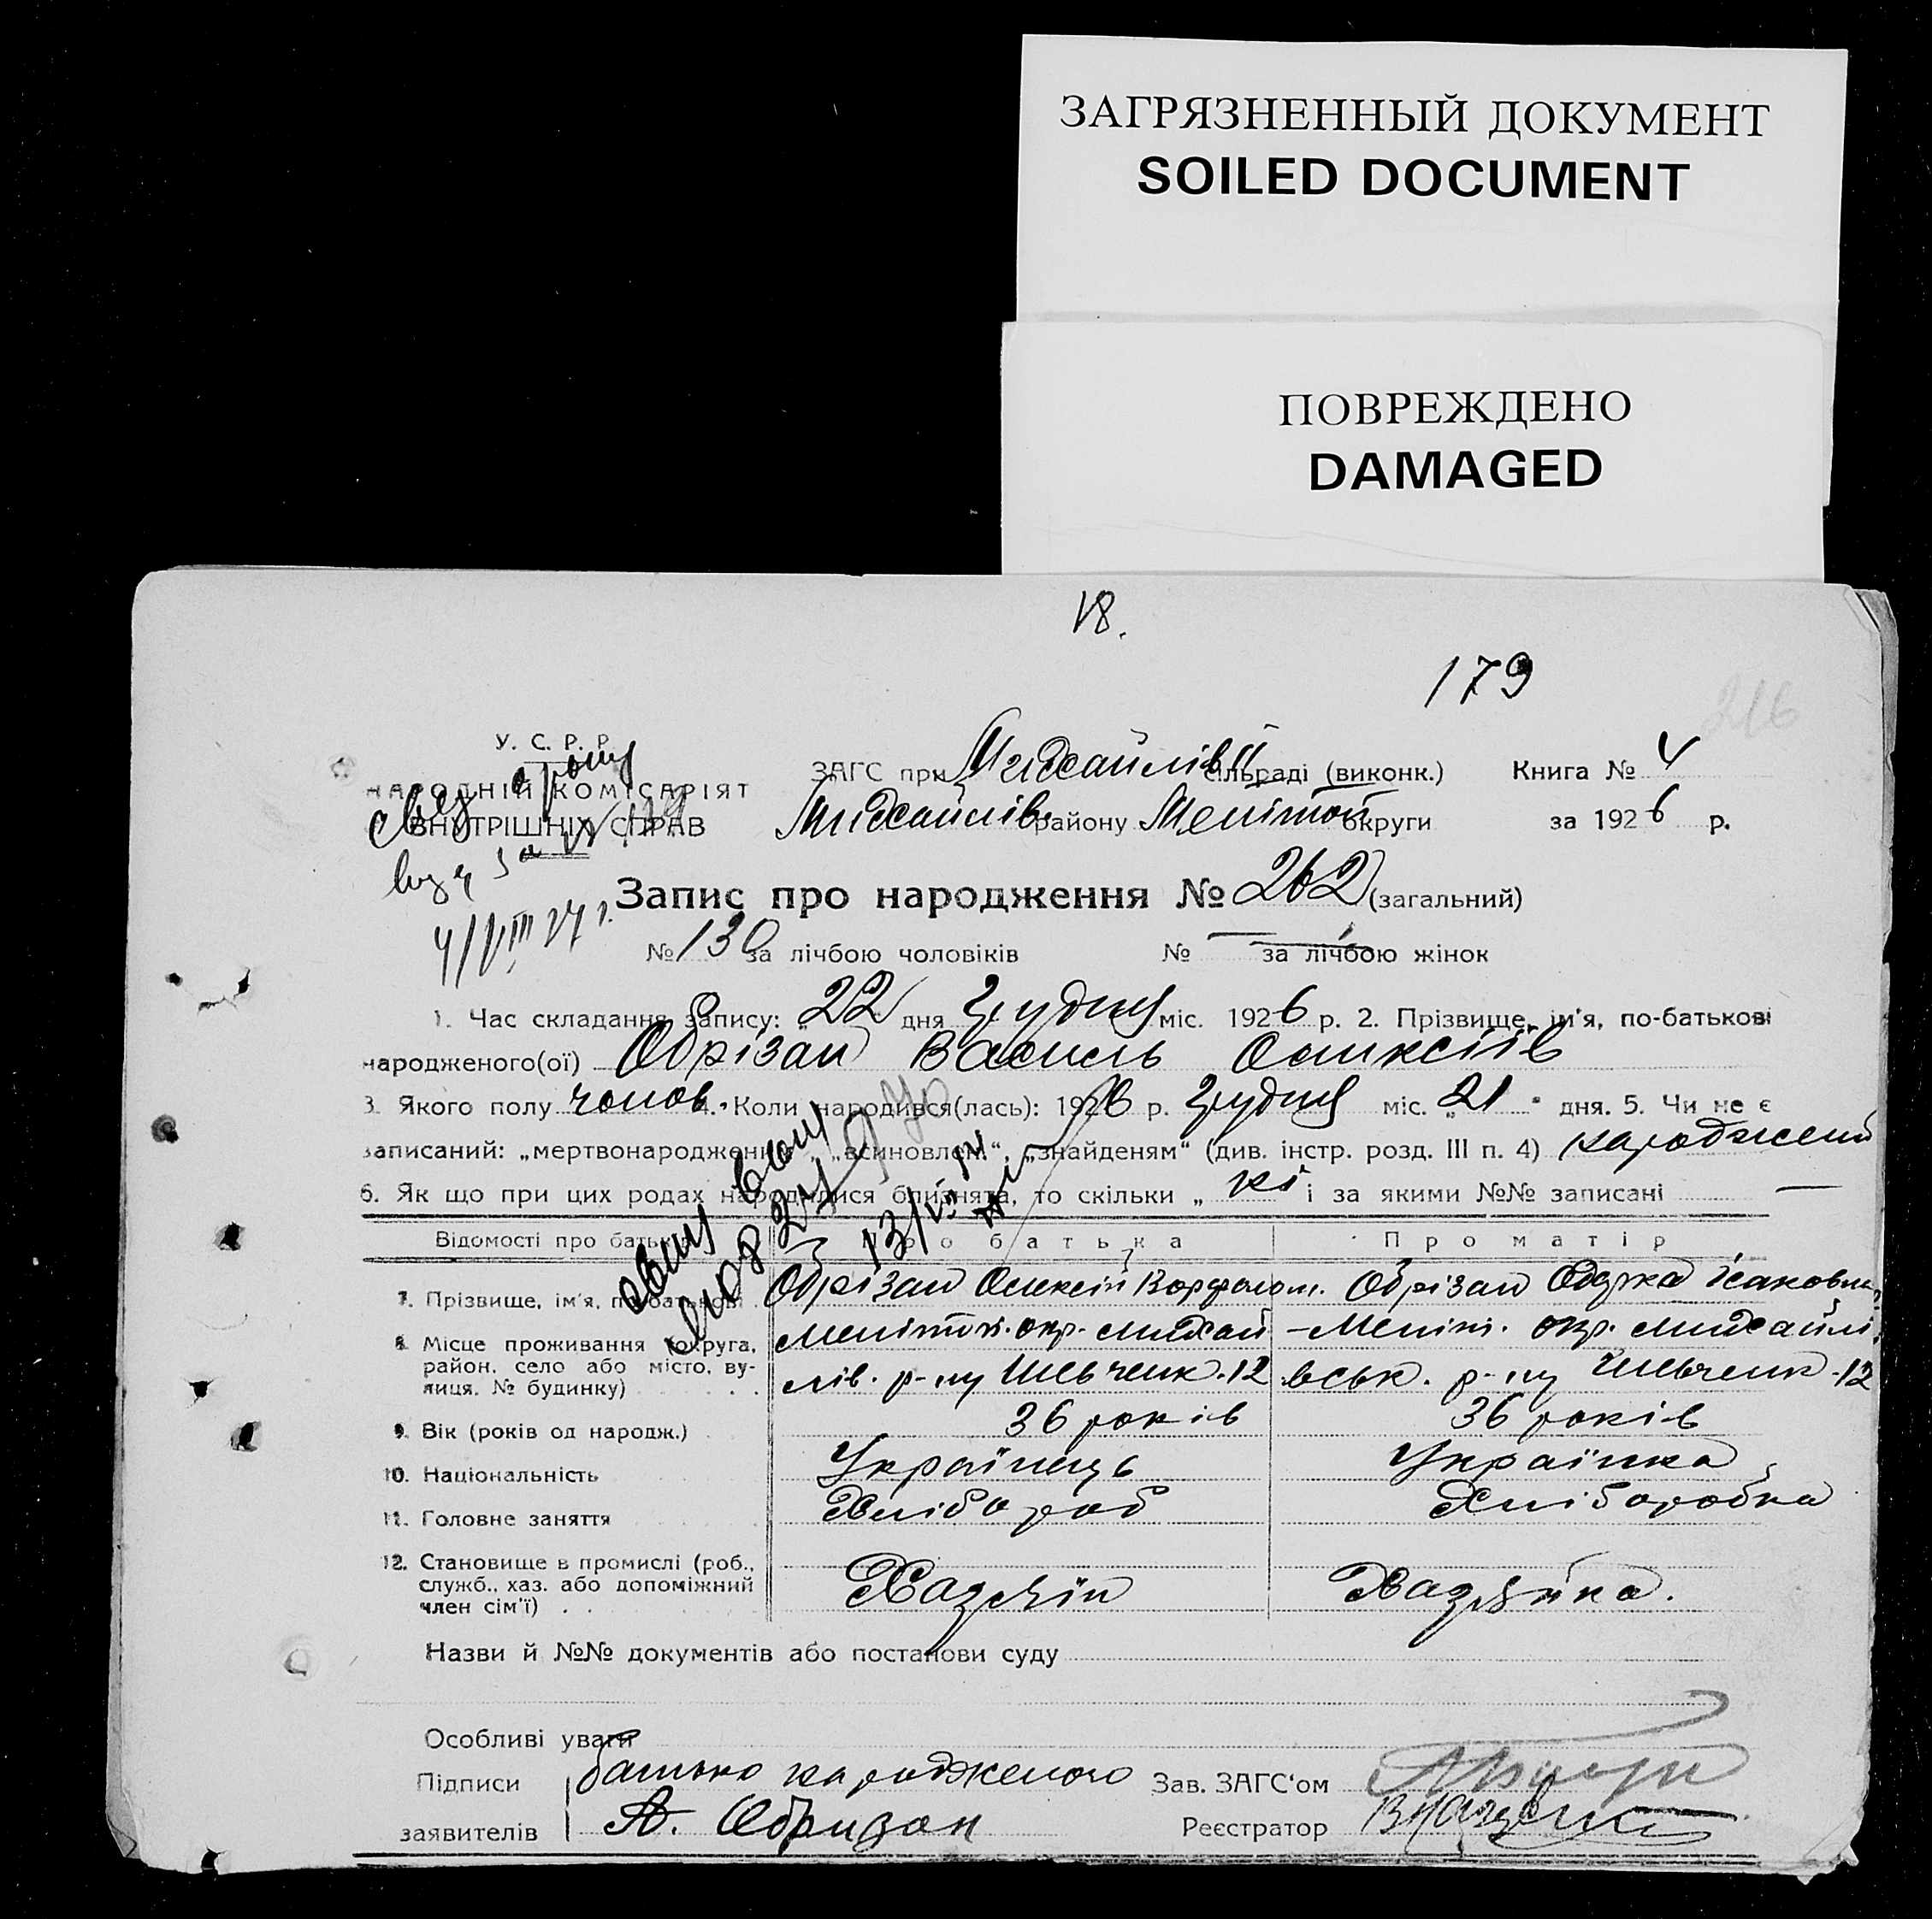 ЗАГРЯЗНЕННЫЙ ДОКУМЕНТ
SOILED DOCUMENT
ПОВРЕЖДЕНО
DAMAGED
18.
179
216
У. С. Р. Р.
НАРОДНІЙ КОМІСАРІЯТ
ВНУТРІШНІХ СПРАВ
ЗАГС при Михайлів сільраді (виконк.) Книга № 4
Михайлів району Меліт округи за 1926 р.
Запис про народження № 262 (загальний)
№ 130 за лічбою чоловіків № — за лічбою жінок
1. Час складання запису: „22" дня Грудня міс. 1926 р. 2. Прізвище, ім'я, по-батькові
народженого(ої) Обрізан Василь Олексіїв
3. Якого полу чолов. 4. Коли народився(лась): 1926 р. Грудня міс. „21" дня. 5. Чи не є
записаний: „мертвонародженим", „всиновлем", „знайденям" (див. інстр. розд. III п. 4) народжений
6. Як що при цих родах народилися близнята, то скільки „ ні і за якими №№ записані —
Відомості про батьків Про батька Про матір
7. Прізвище, ім'я, по-батькові Обрізан Олексій Варфолом. Обрізан Одарка Ісаковна
8. Місце проживання (округа, Меліт. окр. Михай Меліт. окр. Михайлі
район, село або місто, ву- лів. р-ну Шевченк. 12 вськ. р-ну Шевченк. 12
лиця, № будинку)
9. Вік (років од народж.) 36 років 36 років
10. Національність Українець Українка
11. Головне заняття Хлібороб Хліборобка
12. Становище в промислі (роб., служб., хаз. або допоміжний член сім'ї) Хазяїн Хазяйка.
Назви й №№ документів або постанови суду
Особливі уваги
Підписи батько народженого Зав. ЗАГС'ом
заявителів А. Обризан Реєстратор